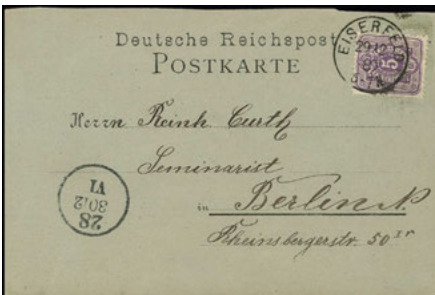 Deutsche Reichspost
POSTKARTE
EISERFELD
29 12
5
Herrn Reinh. Curth
Seminarist
in Berlin N.
Rheinsbergerstr. 50 IV
28
30 12
VI